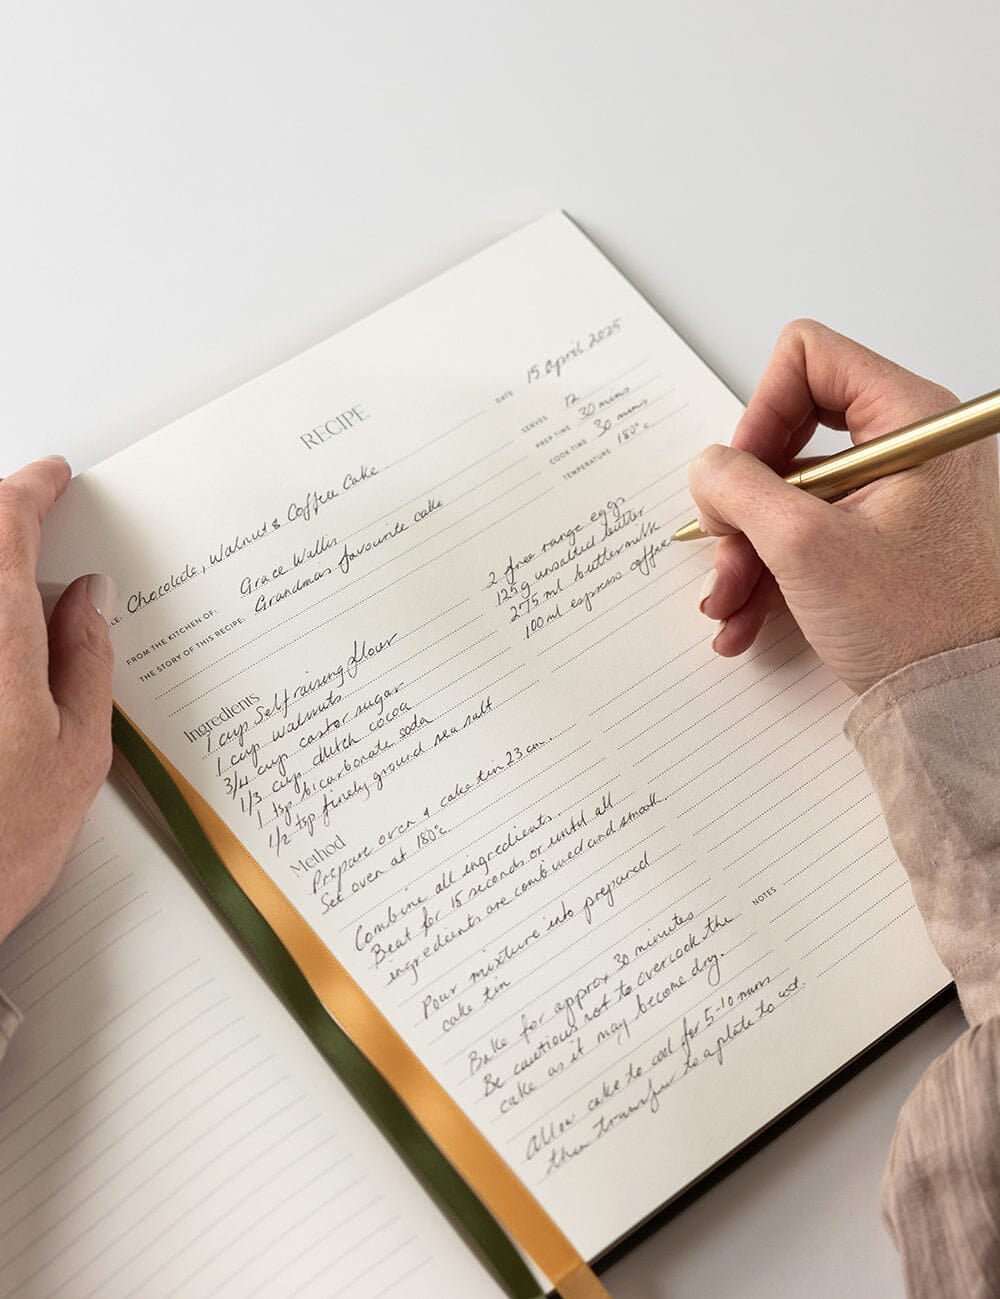 RECIPE
DATE 15 April 2025
Chocolate, Walnut & Coffee Cake
SERVES 12
PREP TIME 30 mins
COOK TIME 30 mins
TEMPERATURE 180°c
FROM THE KITCHEN OF: Grace Wallis
THE STORY OF THIS RECIPE: Grandma's favourite cake
Ingredients
1 cup Self raising flour
1 cup walnuts
3/4 cup castor sugar
1/3 cup dutch cocoa
1 tsp bicarbonate soda
1/2 tsp finely ground sea salt
2 free range eggs
125g unsalted butter
275 ml buttermilk
100 ml espresso coffee
Method
Prepare oven & cake tin 23 cm.
Set oven at 180°c
Combine all ingredients.
Beat for 15 seconds or until all
ingredients are combined and smooth.
Pour mixture into prepared
cake tin
Bake for approx 30 minutes
Be cautious not to overcook the
cake as it may become dry.
Allow cake to cool for 5-10 mins
then transfer to a plate to cool.
NOTES